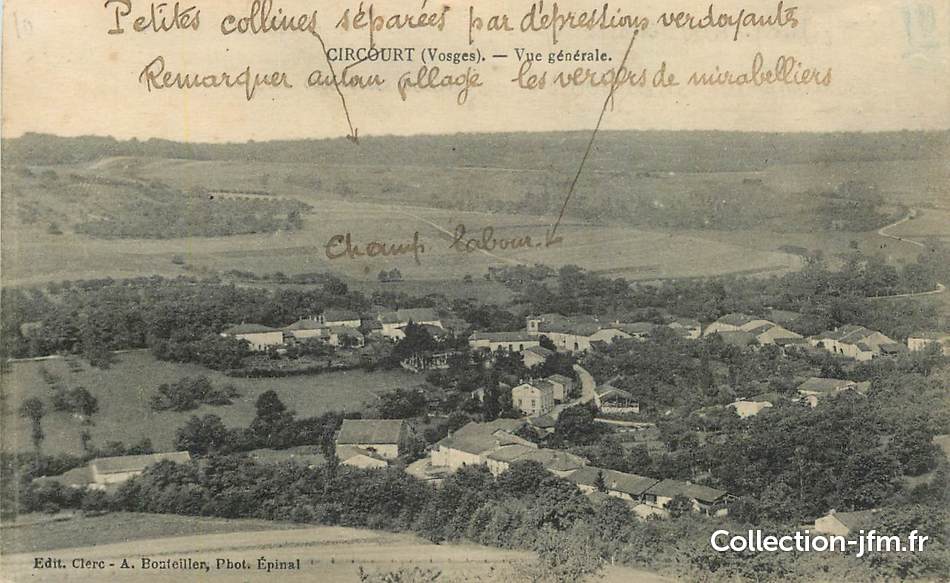 Petites collines séparées par dépressions verdoyantes
CIRCOURT (Vosges). — Vue générale.
Remarquer autour village les vergers de mirabelliers
Champ labour.
Edit. Clerc - A. Bouteiller, Phot. Épinal
Collection-jfm.fr